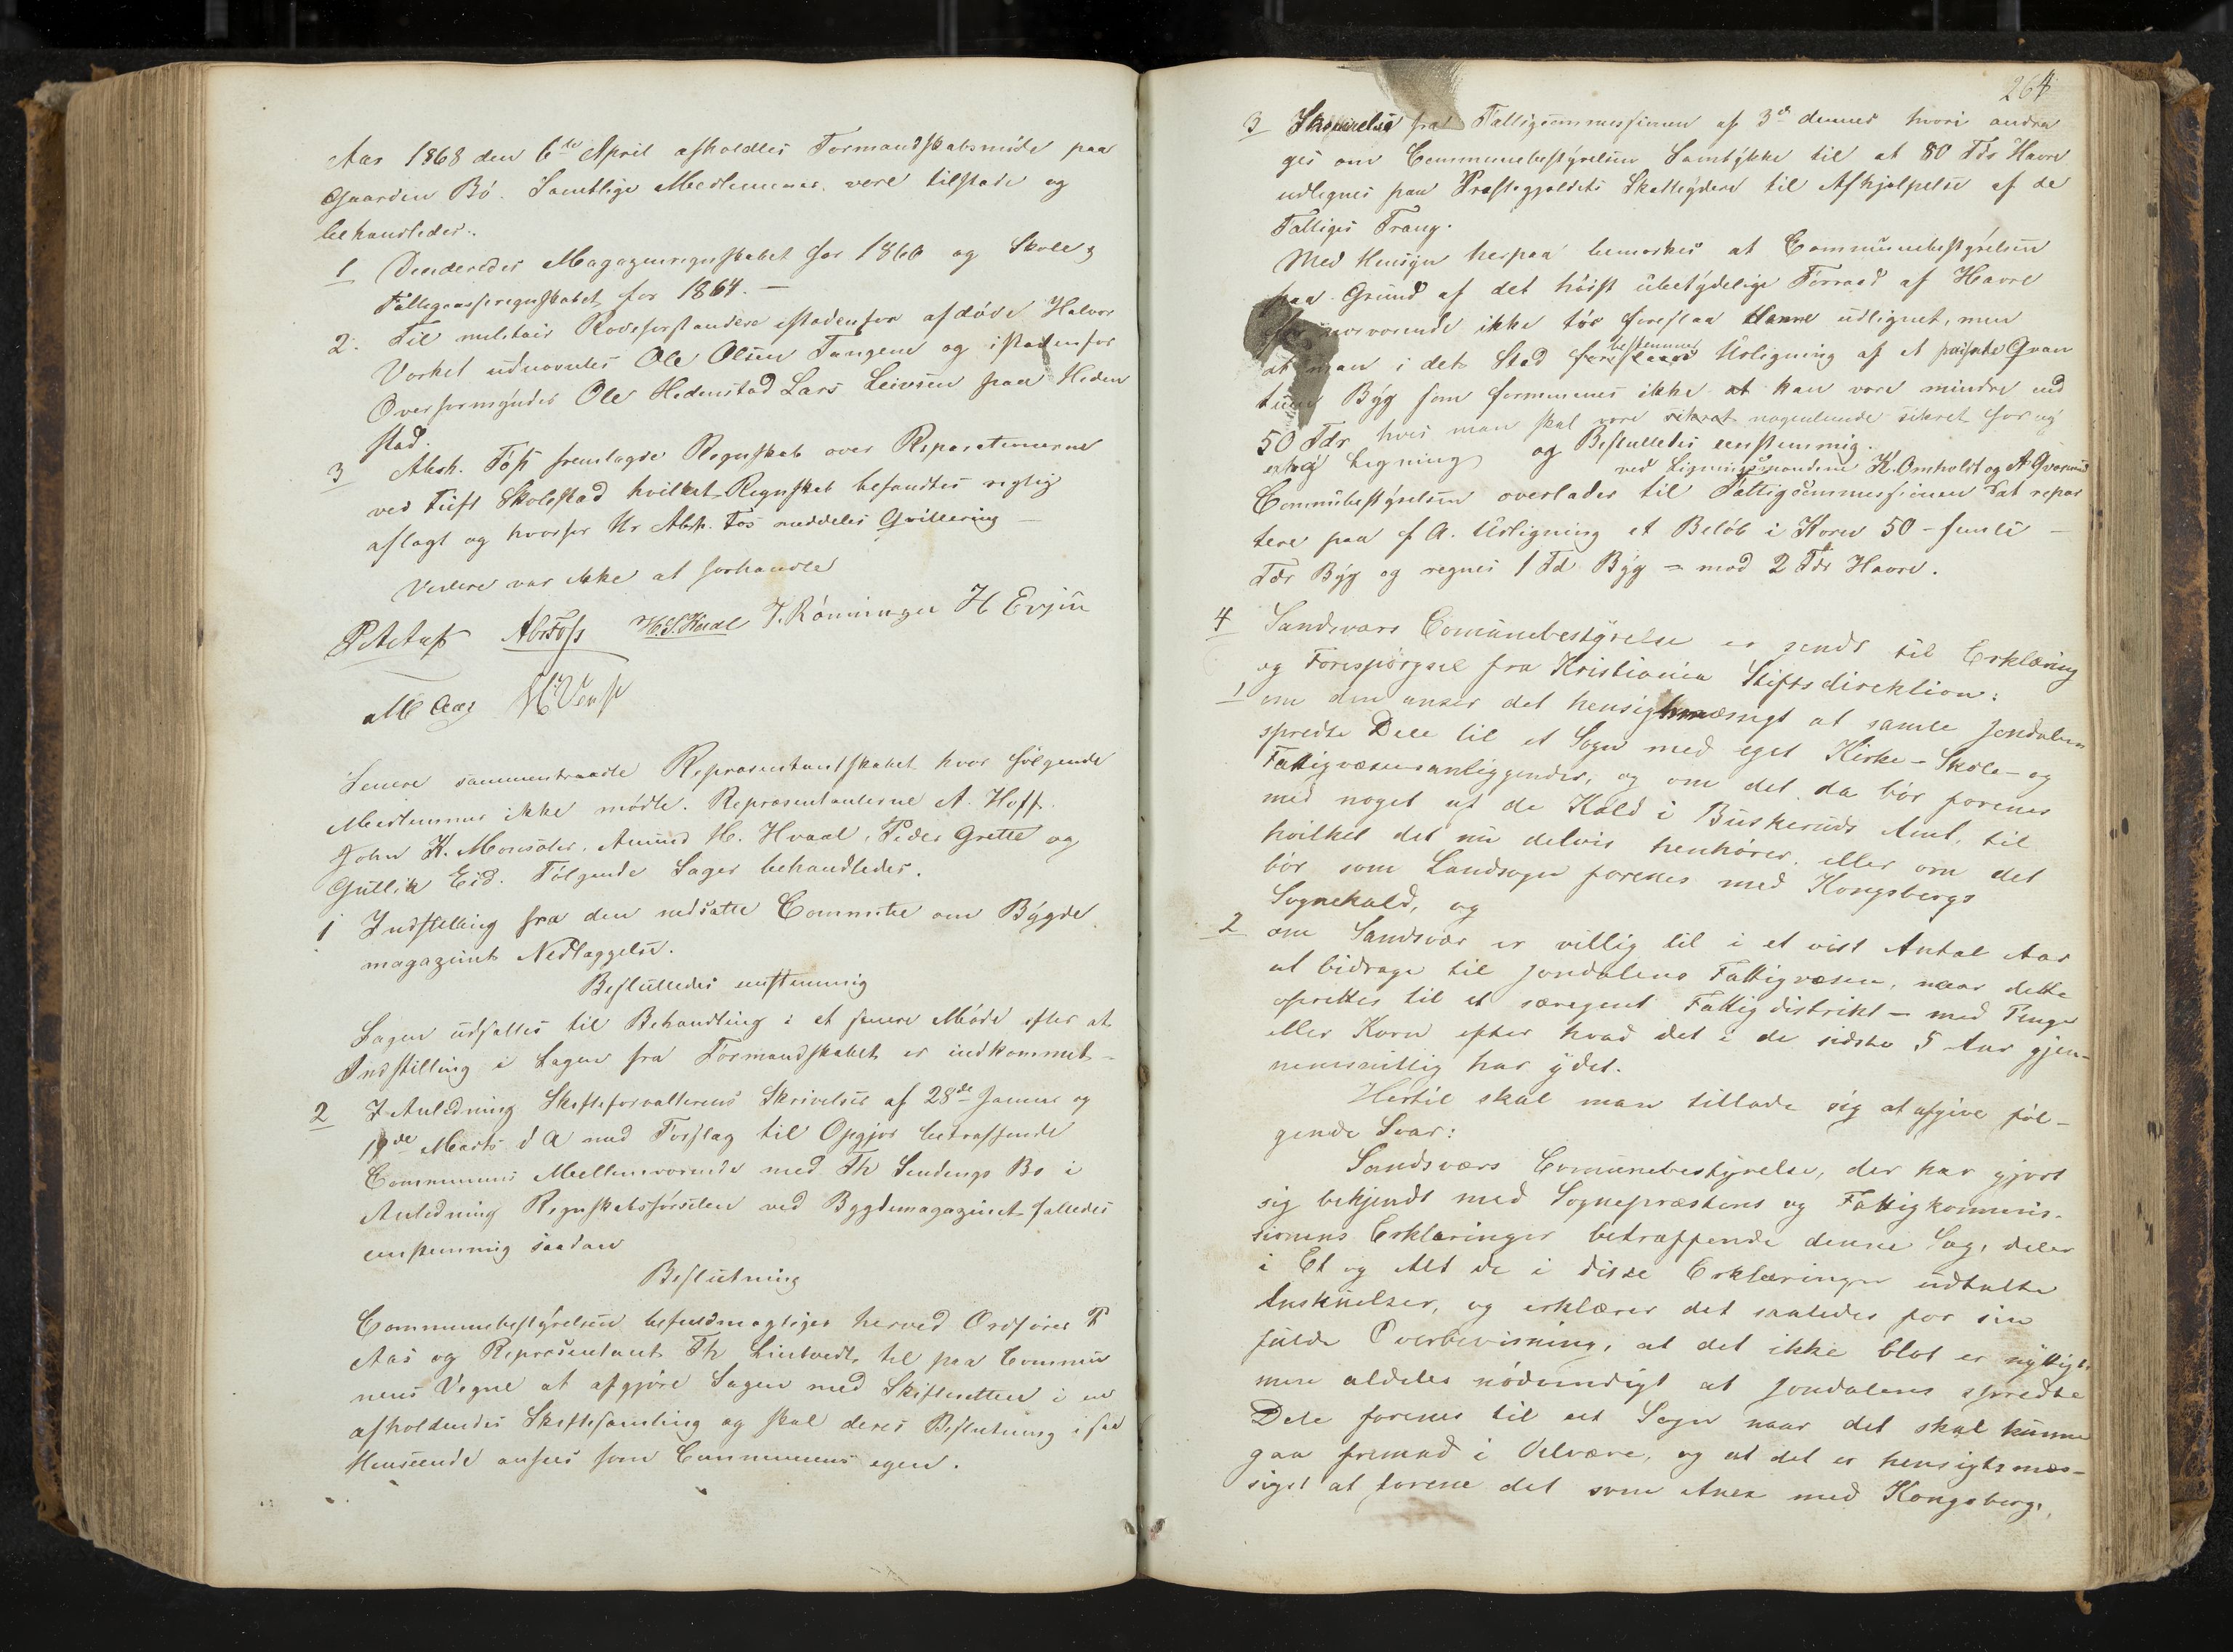 Aar 1868 den 6te April afholdtes Formandskabsmöde paa
Gaarden Bö. Samtlige Medlemmer vare tilstæde og
behandledes:
1 Decideredes Magazinregnskabet for 1866 og Skole &
Fattigcasseregnskabet for 1864. —
2. Til militair Rodeforstandere istedenfor afdöde Halvor
Værket udnævntes Ole Olsen Tangene og istedenfor
Overformynder Ole Hedenstad Lars Leivsen paa Heden
stad.
3 Abrh. Fos fremlagde Regnskab over Reparationerne
ved Tuft Skolestad hvilket Regnskab befandtes rigtig
aflagt og hvorfor Hr Abrh. Fos meddeles Qvittering —
Videre var ikke at forhandle
Abr Foss H. S. Hvaal T. Rönningen H Evju
M Aas
Senere sammentraadte Repræsentantskabet hvor fölgende
Medlemmer ikke mödte. Repræsentanterne A. Hoff.
John K. Mærsæter, Amund H. Hvaal, Peder Grette og
Gullik Eid. Fölgende Sager behandledes.
1 Indstilling fra den nedsatte Committe om Bygde
magazinets Nedlæggelse.
Besluttedes eenstemmig
Sagen udsættes til Behandling i et senere Möde efter at
Indstilling i Sagen fra Formandskabet er indkommet —
2 I Anledning Skifteforvalterens Skrivelser af 28de Januar og
19de Marts d A med Forslag til Opgjør betræffende
Communens Mellemværende med Th Sendings Bo i
Anledning Regnskabsförselen ved Bygdemagazinet fattedes
eenstemmig saadan
Beslutning
Communebestyrelsen befuldmægtiger herved Ordförer P
Aas og Repræsentant Th Lintvedt til paa Commu
nens Vegne at afgjøre Sagen med Skifteretten i en
afholdendes Skiftesamling og skal deres Beslutning i saa
Henseende ansees som Communens egen.
264
3 Skrivelse fra Fattigcommissionen af 3de dennes hvori andra
ges om Communebestyrelsens Samtykke til at 80 Tdr Havre
udlignes paa Præstegjældets Skatteydere til Afhjælpelse af de
Fattiges Trang.
Med Hensyn herpaa bemærkes at Communebestyrelsen
paa Grund af det höist ubetydelige Forraad af Havre
nærværende ikke tör foreslaa Havre udlignet, men
bestemmer
at man i dets Sted foreslaar Udligning af et passende Qvan
tum Byg som formenes ikke at kan være mindre end
50 Tdr hvis man skal være sikret nogenlunde sikret for ny
extra Ligning og Besluttedes eenstemmig.
ved Ligningsmændene K. Omholdt og A. Qvarnes
Commubestyrelsen overlader til Fattigcommissionen at repar
tere paa f A. Udligning et Belöb i Korn 50 - femti —
Tdr Byg og regnes 1 Td Byg = mod 2 Tdr Havre.
4 Sandsværs Comunebestyrelse er sendt til Erklæring
og Forespørgsel fra Kristiania Stiftsdirektion:
1 om den anser det hensigtsmæssigt at samle Jondalens
spredte Dele til et Sogn med eget Kirke- Skole- og
Fattigvæsensanliggender, og om det da bör forenes
med noget af de Kald i Buskeruds Amt, til
hvilket det nu delvis henhörer, eller om det
bör som Landsogn forenes med Kongsbergs
Sognekald, og
2 om Sandsvær er villig til i et vist Antal Aar
at bidrage til Jondalens Fattigvæsen, naar dette
oprettes til et særegent Fattigdistrikt — med Penge
eller Korn efter hvad det i de sidste 5 Aar gjen-
nemsnitlig har ydet.
Hertil skal man tillade sig at afgive föl-
gende Svar:
Sandsværs Comunebestyrelse, der har gjort
sig bekjendt med Sognepræstens og Fattigkommis-
sionens Erklæringer betræffende denne Sag, deler
i Et og Alt de i disse Erklæringer udtalte
Anskuelser, og erklærer det saaledes for sin
fulde Overbevisning, at det ikke blot er nyttigt,
men aldeles nödvendigt at Jondalens spredte
Dele forenes til eet Sogn naar det skal kunne
gaa fremad i Velvære, og at det er hensigtsmæs-
sigst at forene det som Anex med Kongsberg,